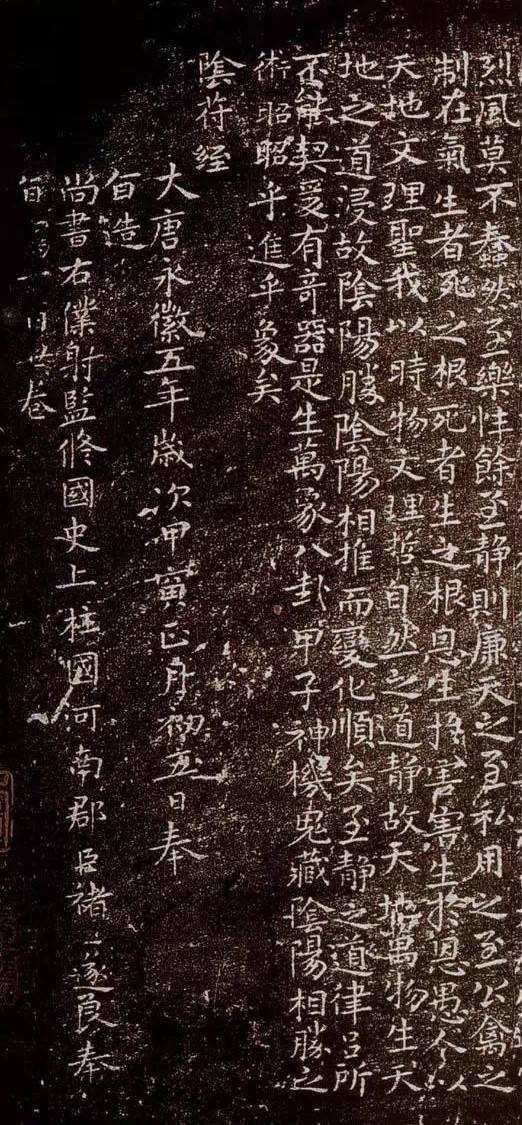 烈風莫不蠢然至樂性餘至静則廉天之至私用之至公禽之
制在氣生者死之根死者生之根恩生扵害害生扵恩愚人以
天地文理聖我以時物文理哲自然之道静故天地萬物生天
地之道浸故陰陽勝陰陽相推而變化順矣至静之道律吕所
不能契爰有奇器是生萬象八卦甲子神機鬼藏陰陽相勝之
術昭昭乎進乎象矣
陰符经
大唐永徽五年歲次甲寅正月初五日奉
旨造
尚書右僕射監修國史上柱國河南郡臣禇遂良奉
旨寫一百廾卷